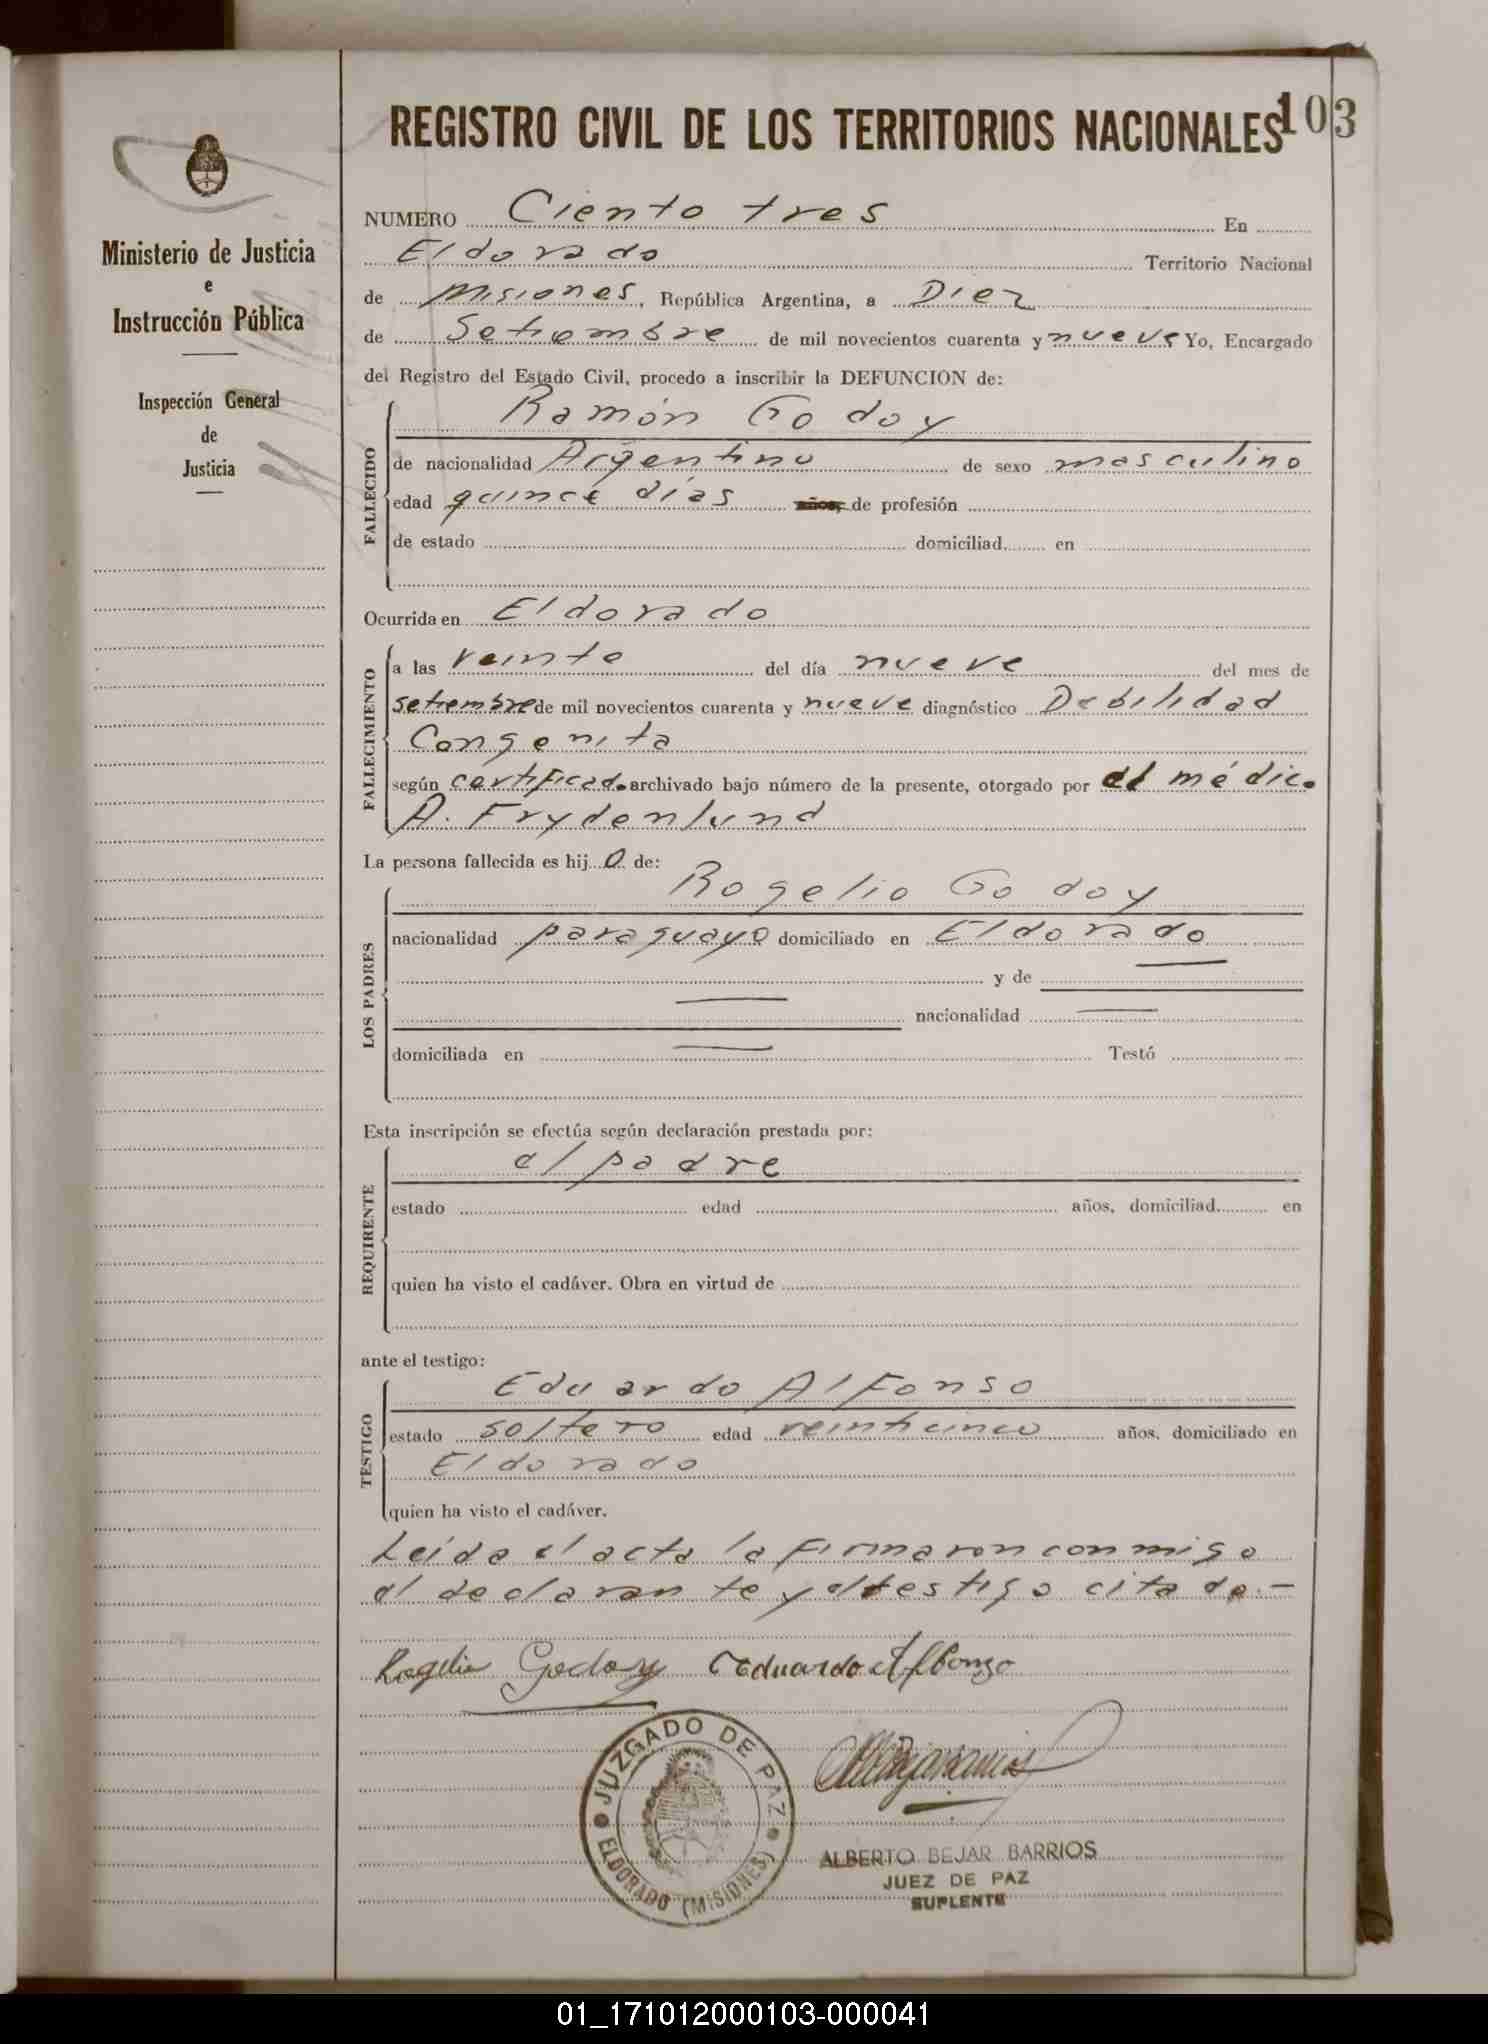 REGISTRO CIVIL DE LOS TERRITORIOS NACIONALES 103
Ministerio de Justicia
e
Instrucción Pública
Inspección General
de
Justicia
NUMERO Ciento tres En
Eldorado Territorio Nacional
de Misiones, República Argentina, a Diez
de Setiembre de mil novecientos cuarenta y nueve Yo, Encargado
del Registro del Estado Civil, procedo a inscribir la DEFUNCION de:
FALLECIDO
Ramón Godoy
de nacionalidad Argentino de sexo masculino
edad quince días años, de profesión
de estado domiciliad en
Ocurrida en Eldorado
FALLECIMIENTO
a las veinte del día nueve del mes de
setiembre de mil novecientos cuarenta y nueve diagnóstico Debilidad
Congenita
según certificado archivado bajo número de la presente, otorgado por el médico
A. Frydenlund
La persona fallecida es hijo de:
LOS PADRES
Rogelio Godoy
nacionalidad paraguayo domiciliado en Eldorado
y de —
— nacionalidad —
domiciliada en — Testó
Esta inscripción se efectúa según declaración prestada por:
REQUIRENTE
el padre
estado edad años, domiciliad en
quien ha visto el cadáver. Obra en virtud de
ante el testigo:
TESTIGO
Eduardo Alfonso
estado soltero edad veinticinco años, domiciliado en
Eldorado
quien ha visto el cadáver.
Leída el acta la firmaron conmigo
el declarante y el testigo citado.—
Rogelio Godoy Eduardo Alfonso
JUZGADO DE PAZ
ELDORADO (MISIONES)
ALBERTO BEJAR BARRIOS
JUEZ DE PAZ
SUPLENTE
01_171012000103-000041